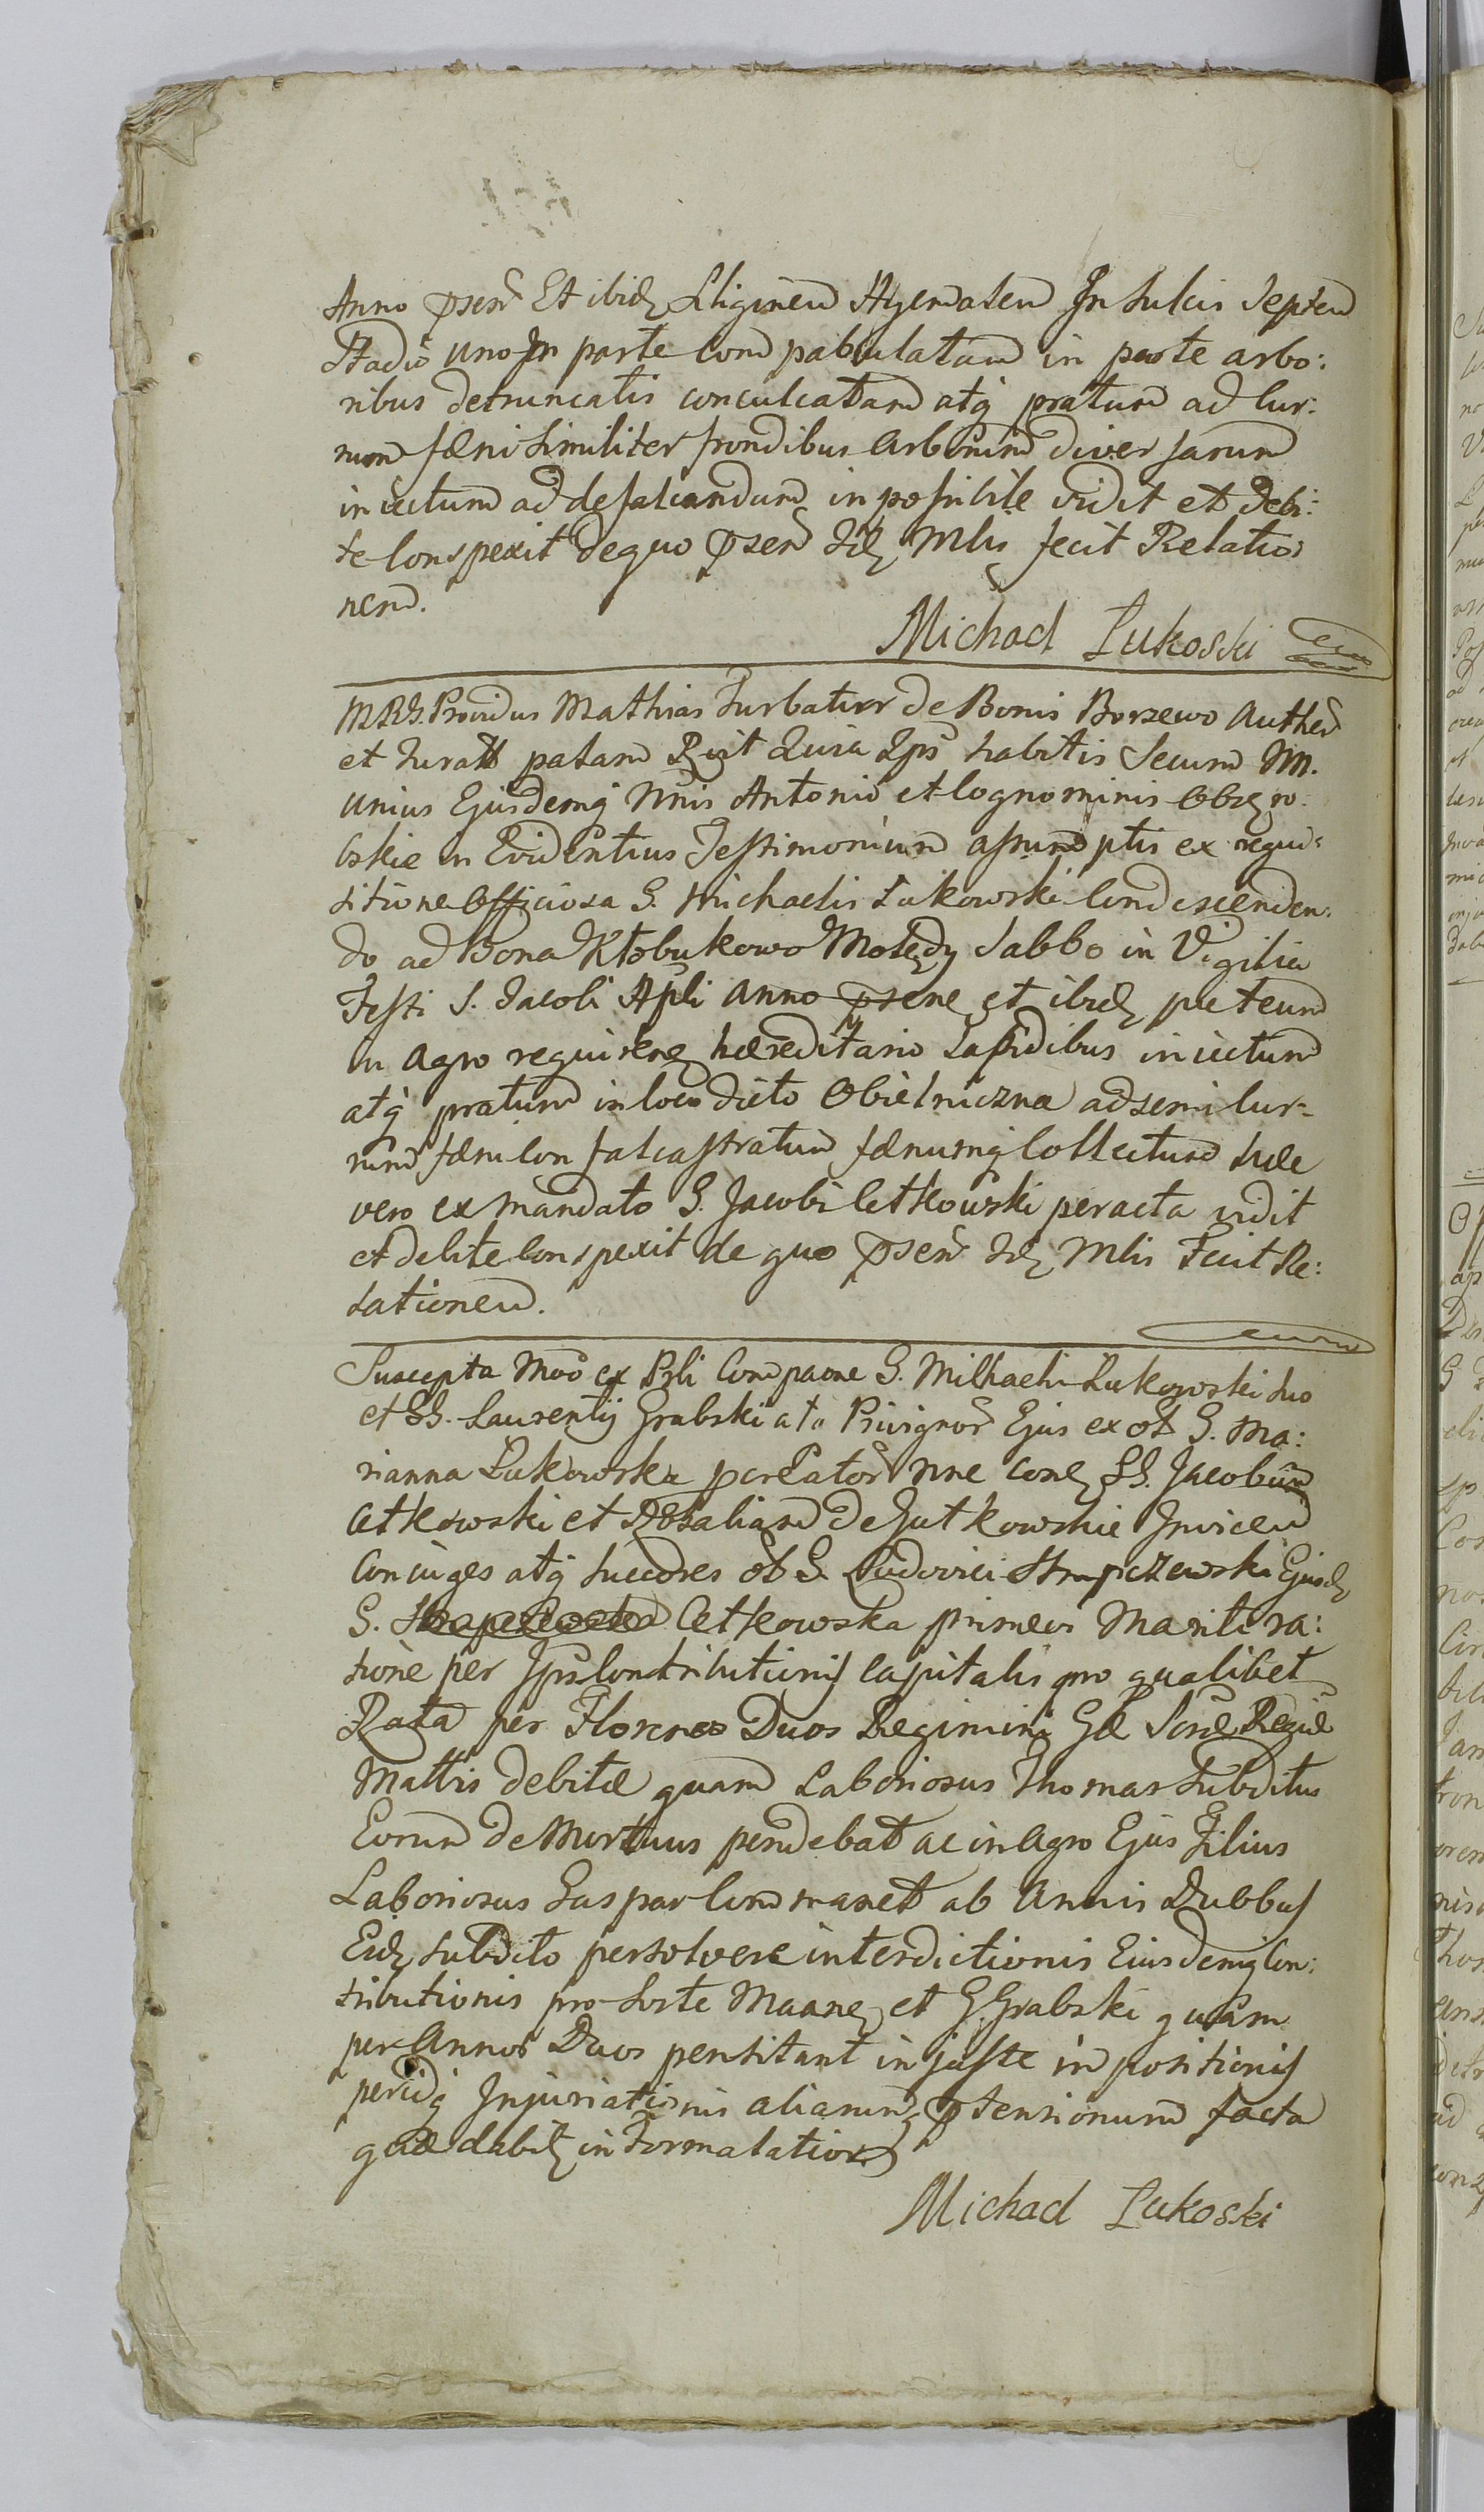 Anno pser Et ibid Siliginem Hyemalem In Sulcis Septem
Stadio uno In parte Com pabulatam in parte arbo:
ribus detruncatis conculcatam atq pratum ad Cur:
rum fæni Similiter frondibus arborum diversarum
iniectum ad defalcandum inpossibile vidit et Debi:
te Conspexit de quo pser Id Mlis fecit Relatio:
nem.
Michael Lukoski
M.R.G. Providus Mathias Turbatior de Bonis Borzewo Authen
et Juratt palam Rcit Quia Ips habitis Secum NN.
unius Ejusdemq Nnis Antonio et Cognominis
in Evidentius Testimonium assumptis ex requi:
sitione Officiosa G. Michaelis Łukowski Condescenden:
do ad Bona Kłobukowo Molędy Sabbo in Vigilia
Festi S. Jacobi Apli Anno psene et ibid puteum
in agro requirene hæreditario Lapidibus iniectum
atq pratum in loco dicto Obielniczna ad semi Cur:
rum fæni Con falcastratum fænumq Collectum hæc
vero ex mandato G. Jacobi Cetkowski peracta vidit
et debite Conspexit de quo pser Id Mlis Fecit Re:
lationem.
Suscepta Mo ex Pbli Compaone G. Milhaelis Łukowski Suo
et GG. Laurentij Grabski ato Privignor Ejus ex ol G. Ma:
rianna Łukowska pcreator nne cone GG. Jacobum
Cetkowski et Rosaliam de Gutkowskie Invicem
Conciuges atq Succores ol G. Ludovici Strupczewski Ejusd
G. Cetkowska primevi Mariti ra:
tione per Ips Contributionis Capitalis pro qualibet
Rata per Florenos Duos Regimini Gæ Sacræ Regiæ
Mattis debitæ quam Laboriosus Thomas Subditus
Eorum de Mortuus pendebat ac in agro Ejus Filius
Laboriosus Gaspar Com manet ab Annis Duobus
Eid Subdito persolvere interdictionis Eiusdemq Con:
tributionis pro Sorte Maane et G. Grabski quam
per Annos Duos pensitant injuste inpositionis
pcidq Injuriationis aliarumq ptensionum facta
quæ dabit informatior
Michael Lukoski